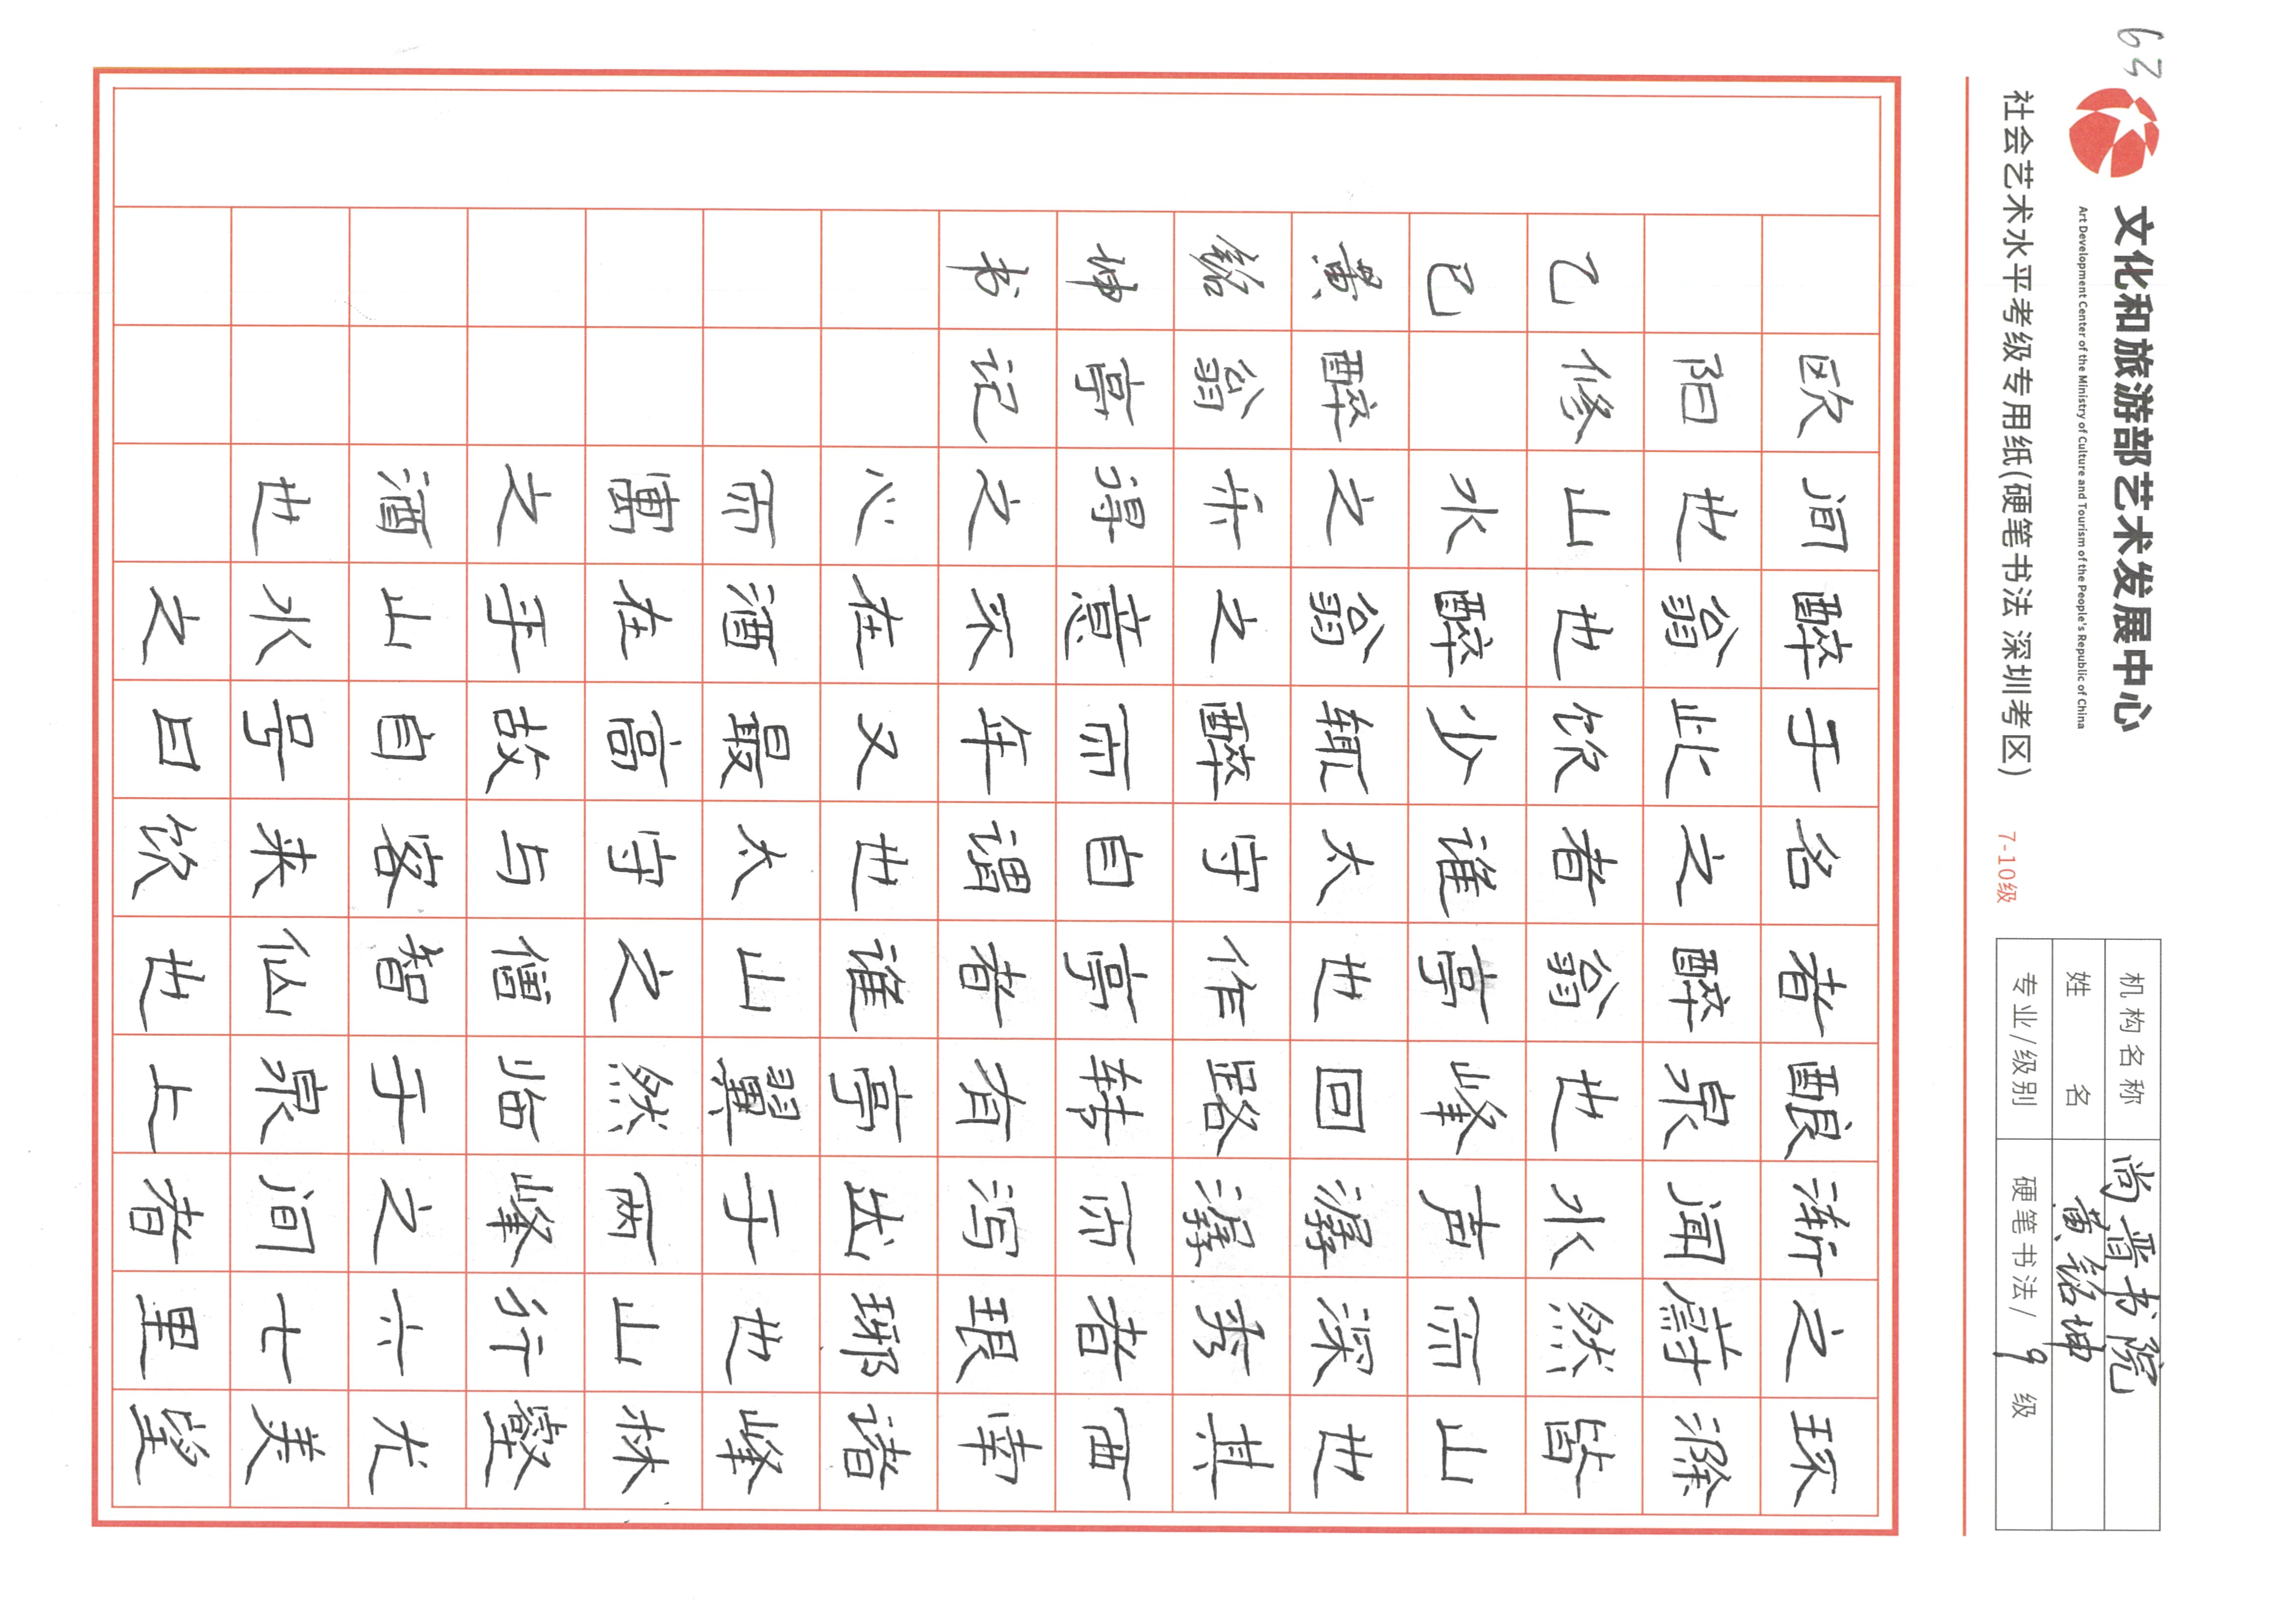 63
文化和旅游部艺术发展中心
Art Development Center of the Ministry of Culture and Tourism of the People's Republic of China
社会艺术水平考级专用纸(硬笔书法 深圳考区)
7-10级
机构名称 尚晋书院
姓名 黄铭坤
专业/级别 硬笔书法/9级
环滁皆山也其西南诸峰林壑尤美望
之蔚然而深秀者琅琊也山行六七里
渐闻水声潺潺而泻出于两峰之间者
酿泉也峰回路转有亭翼然临于泉上
者醉翁亭也作亭者谁山之僧智仙也
名之者谁太守自谓也太守与客来饮
于此饮少辄醉而年又最高故自号曰
醉翁也醉翁之意不在酒在乎山水之
间也山水之乐得之心而寓之酒也
欧阳修 醉翁亭记
乙巳黄铭坤书